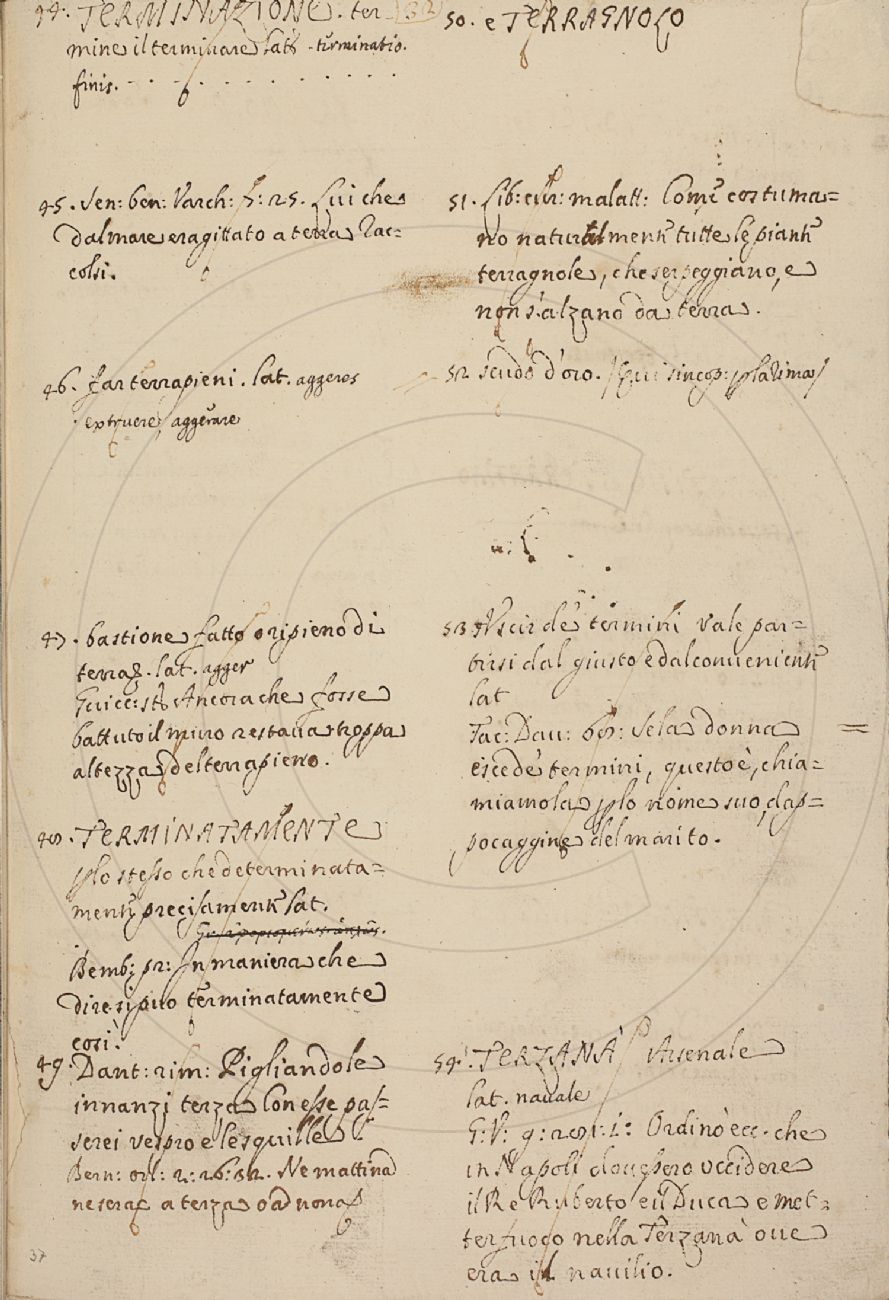 44. TERMINAZIONE. ter (32)
mine il terminare Lat. terminatio.
finis.
45. Sen: ben: Varch: f: 25. Lui che
dal mare era gittato a terra Rac=
colsi.
46. Far terrapieni. Lat. aggeres
extruere, aggerare
47. bastione fatto o ripieno di
terra. lat. agger
Guicc: st: Ancora che fosse
battuto il muro restava troppa
altezza del terrapieno.
48. TERMINATAMENTE
lo stesso che determinata=
ment precisament Lat.
Bemb: pr: In maniera che
dire si puo terminatamente
così.
49. Dant: rim: Pigliandole
innanzi terza Con esse pas=
serei vespro e le squille
Bern: orl: 2: 26: 52. Ne mattina
ne sera, a terza o ad nona
50. e TERRAGNOLO
51. Lib: cur: malatt: Come costuma=
no naturalment tutte le piant
terragnole, che serpeggiano, e
non s'alzano da terra.
52. scudo d'oro.
53. Uscir de termini vale par=
tirsi dal giusto e dal convenient
lat
Tac: Dav: Se la donna
esce de termini, questo è, chia=
miamola lo nome suo, dap=
pocaggine del marito.
54. TERZANÀ Arsenale
Lat. navale
G: V: 9: Ordinò ecc. che
in Napoli dovessero uccidere
il Re Ruberto e il Duca e met=
ter fuoco nella Terzanà ove
era il navilio.
37